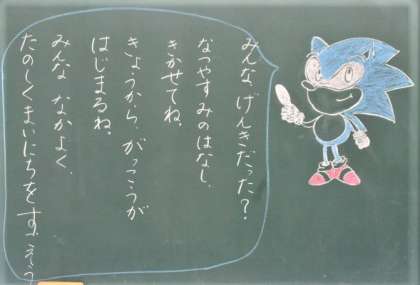 みんな、げんきだった？
なつやすみのはなし、
きかせてね。
きょうから、がっこうが
はじまるね。
みんな なかよく、
たのしくまいにちをすごそう